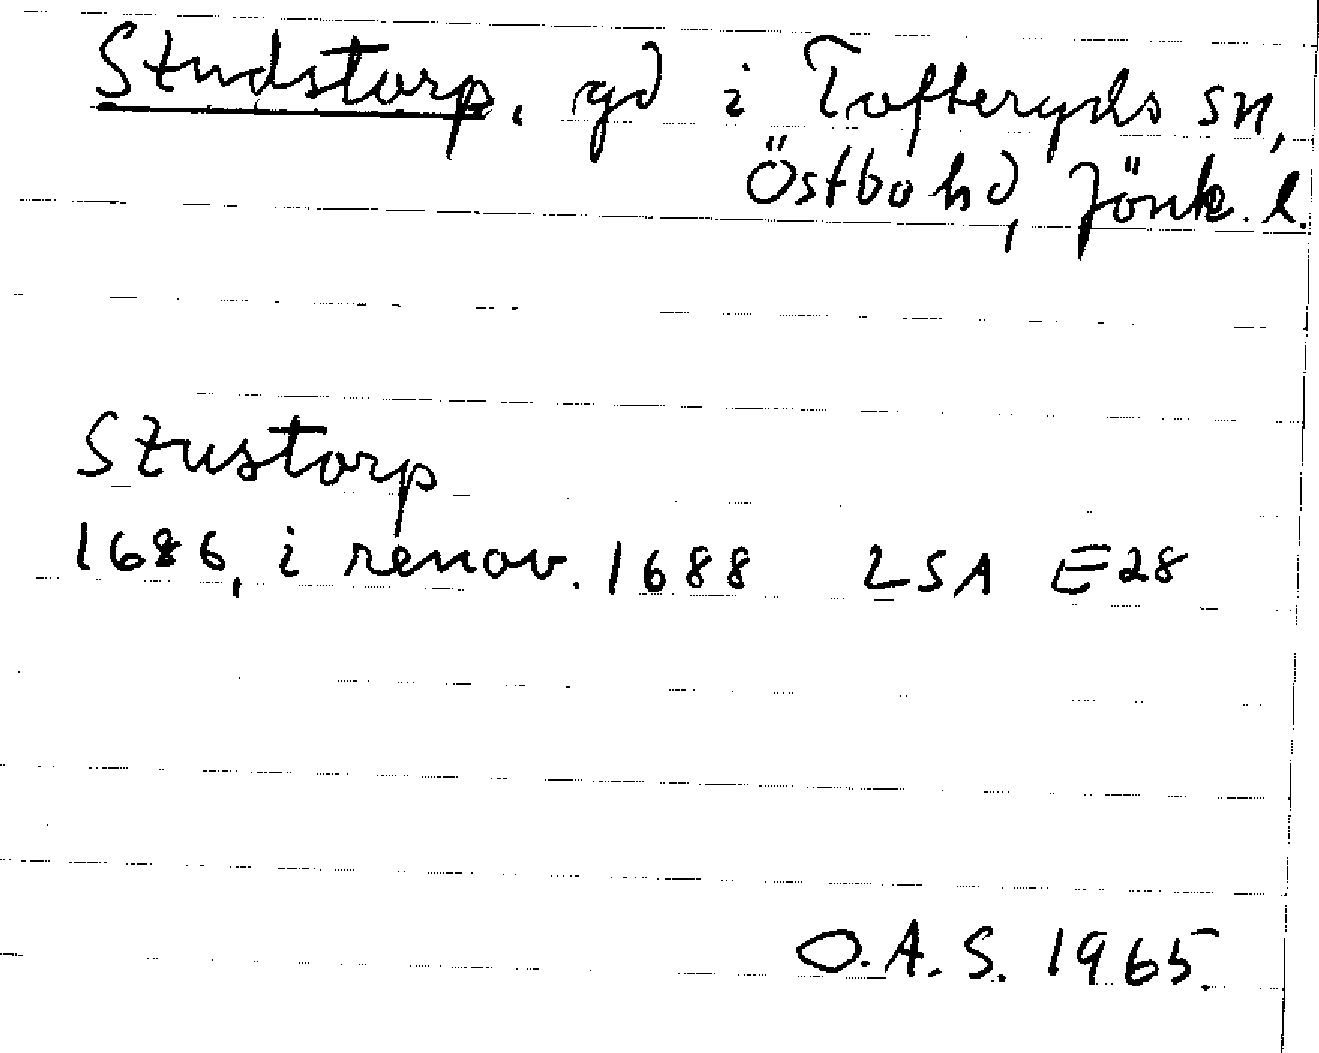 Studstorp, gd i Tofteryds sn,
Östbo hd, Jönk. l.
Stustorp
1686, i renov. 1688 LSA E28
O.A.S. 1965.